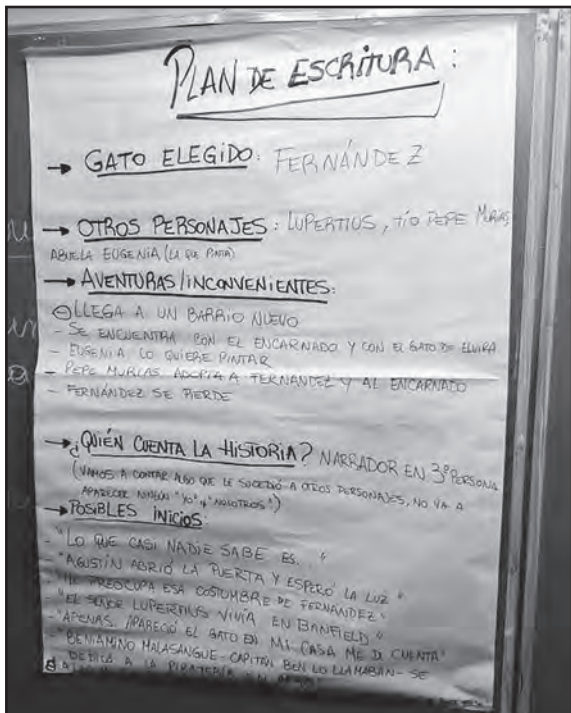 PLAN DE ESCRITURA:
→ GATO ELEGIDO: FERNÁNDEZ
→ OTROS PERSONAJES: LUPERTIUS, TÍO PEPE MURIAS,
ABUELA EUGENIA (LA QUE PINTA)
→ AVENTURAS/INCONVENIENTES:
LLEGA A UN BARRIO NUEVO
- SE ENCUENTRA CON EL ENCARNADO Y CON EL GATO DE ELVIRA
- EUGENIA LO QUIERE PINTAR
- PEPE MURIAS ADOPTA A FERNÁNDEZ Y AL ENCARNADO
- FERNÁNDEZ SE PIERDE
→ ¿QUIÉN CUENTA LA HISTORIA? NARRADOR EN 3º PERSONA
(VAMOS A CONTAR ALGO QUE LE SUCEDIÓ A OTROS PERSONAJES, NO VA A
APARECER NINGÚN "YO" "NOSOTROS")
→ POSIBLES INICIOS:
- "LO QUE CASI NADIE SABE ES... "
- "AGUSTÍN ABRIÓ LA PUERTA Y ESPERÓ LA LUZ"
- "ME PREOCUPA ESA COSTUMBRE DE FERNÁNDEZ"
- "EL SEÑOR LUPERTIUS VIVÍA EN BANFIELD"
- "APENAS APARECIÓ EL GATO EN MI CASA ME DI CUENTA"
- "BENIAMINO MALASANGUE - CAPITÁN BEN LO LLAMABAN - SE
DEDICA A LA PIRATERÍA EN